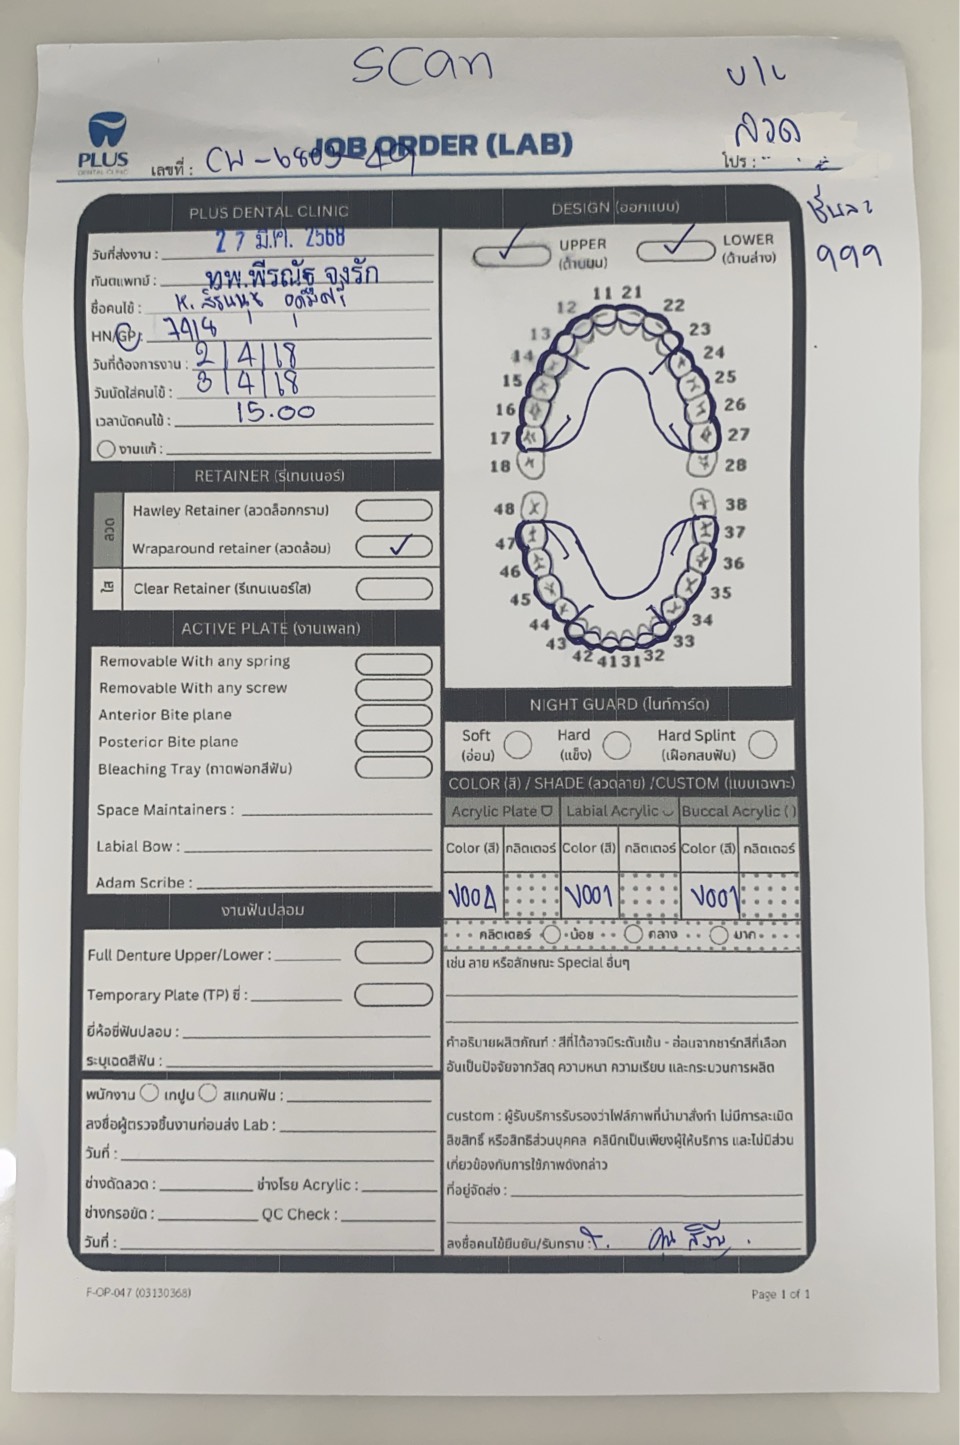 scan
U/L
ลวด
PLUS
DENTAL CLINIC
JOB ORDER (LAB)
เลขที่ : CW-6803-49
โปร :
ชิ้นละ
999
PLUS DENTAL CLINIC
วันที่ส่งงาน : 27 มี.ค. 2568
ทันตแพทย์ : ทพ.พีรณัฐ จงรัก
ชื่อคนไข้ : K.
HN/GP : 7418
วันที่ต้องการงาน : 2/4/68
วันนัดใส่คนไข้ : 3/4/68
เวลานัดคนไข้ : 15.00
งานแก้ :
RETAINER (รีเทนเนอร์)
ลวด
Hawley Retainer (ลวดล็อกกราม)
Wraparound retainer (ลวดล้อม) ✓
ใส
Clear Retainer (รีเทนเนอร์ใส)
ACTIVE PLATE (งานเพลท)
Removable With any spring
Removable With any screw
Anterior Bite plane
Posterior Bite plane
Bleaching Tray (ถาดฟอกสีฟัน)
Space Maintainers :
Labial Bow :
Adam Scribe :
งานฟันปลอม
Full Denture Upper/Lower :
Temporary Plate (TP) ซี่ :
ยี่ห้อซี่ฟันปลอม :
ระบุเฉดสีฟัน :
พนักงาน เทปูน สแกนฟัน :
ลงชื่อผู้ตรวจชิ้นงานก่อนส่ง Lab :
วันที่ :
ช่างดัดลวด : ช่างโรย Acrylic :
ช่างกรอขัด : QC Check :
วันที่ :
DESIGN (ออกแบบ)
✓ UPPER ✓ LOWER
(ด้านบน) (ด้านล่าง)
11 21
12 22
13 23
14 24
15 25
16 26
17 27
18 28
48 38
47 37
46 36
45 35
44 34
43 33
42 41 31 32
NIGHT GUARD (ไนท์การ์ด)
Soft Hard Hard Splint
(อ่อน) (แข็ง) (เฝือกสบฟัน)
COLOR (สี) / SHADE (ลวดลาย) /CUSTOM (แบบเฉพาะ)
Acrylic Plate Labial Acrylic Buccal Acrylic ( )
Color (สี) กลิตเตอร์ Color (สี) กลิตเตอร์ Color (สี) กลิตเตอร์
V001 V001 V001
กลิตเตอร์ น้อย กลาง มาก
เช่น ลาย หรือลักษณะ Special อื่นๆ
คำอธิบายผลิตภัณฑ์ : สีที่ได้อาจมีระดับเข้ม - อ่อนจากชาร์ทสีที่เลือก
อันเป็นปัจจัยจากวัสดุ ความหนา ความเรียบ และกระบวนการผลิต
custom : ผู้รับบริการรับรองว่าไฟล์ภาพที่นำมาสั่งทำ ไม่มีการละเมิด
ลิขสิทธิ์ หรือสิทธิส่วนบุคคล คลินิกเป็นเพียงผู้ให้บริการ และไม่มีส่วน
เกี่ยวข้องกับการใช้ภาพดังกล่าว
ที่อยู่จัดส่ง :
ลงชื่อคนไข้ยืนยัน/รับทราบ :
F-OP-047 (03130368)
Page 1 of 1